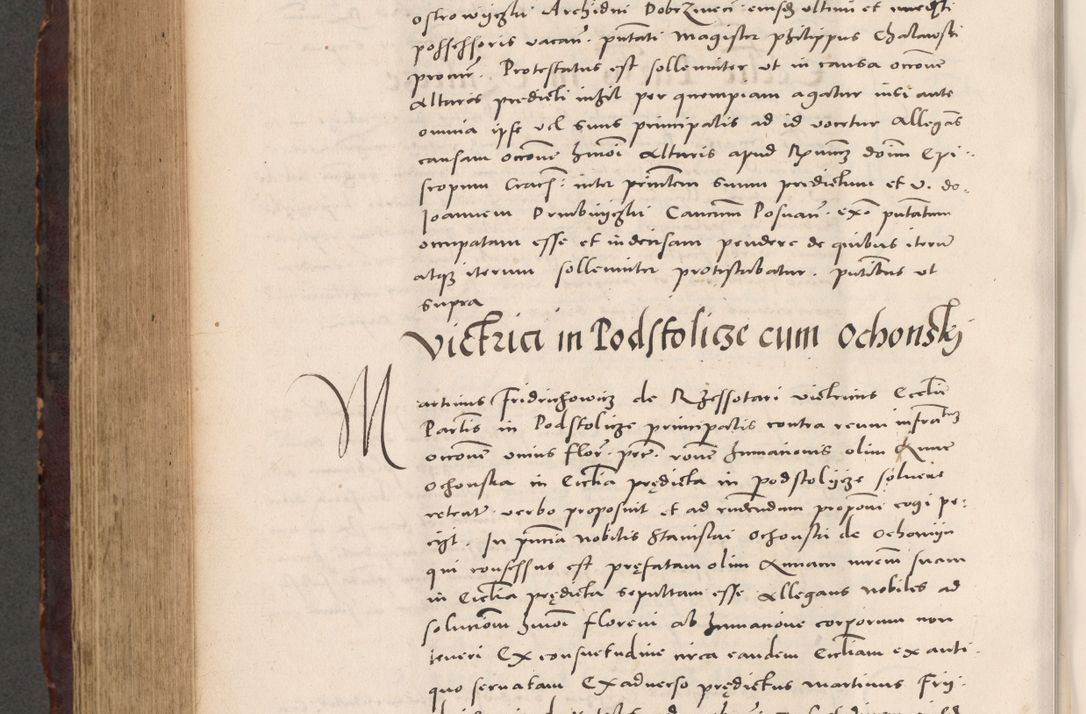 ostrowyczki Archidni Dobrzineci eiusdem ultimi et
possessoris vacan. putati Magister Philippus Chalawski
procur. Protestatus est sollemniter ut in causa occone
Altaris predicti inhil per quempiam agatur nisi ante
omnia ipse vel suus principalis ad id vocetur Allegans
causam occone hmoi Altaris apud Rndum doim Epi-
scopum Crac. inter printem suum predictum et v. do.
Joannem Canicum Posnan. ex putatum
occupatam esse et indecisam pendere de quibus iteru
atque iterum sollemniter protestabatur. putibus ut
supra
Victrici in Podstolicze cum Ochonsky
Martinus Fridrichowicz de Rzessotari victricus Ecclie
Partis in Podstolicze principalis contra reum infratum
occone unius flor. pec. rone humanonis olim Anne
Ochonska in Ecclia predicta in podstolycze solvere
retrat. verbo proposuit et ad rndendum proponi cogi pe-
cyt. In pntia nobilis Stanislai Ochonski de Ochonyn
qui confessus est prefatam olim Annam urem suam
in Ecclia predicta sepultam esse Allegans nobiles ad
solucom hmoi floreni ab humanone corporum non
teneri Ex consuetudine circa eandem Eccliam ex anti-
quo servatam Ex adverso predictus Martinus Fry-